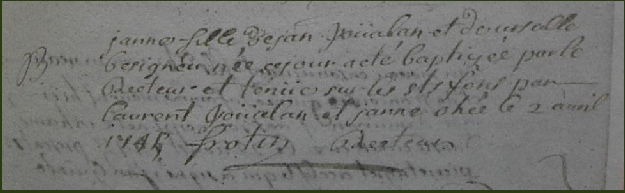 B janne fille de jan joüalan et dourselle
besigneu née ce jour a eté baptizée par le
Recteur et tenüe sur les sts fons par
laurent joüalan et janne ohée le 2 avril
1745 frotin Recteur